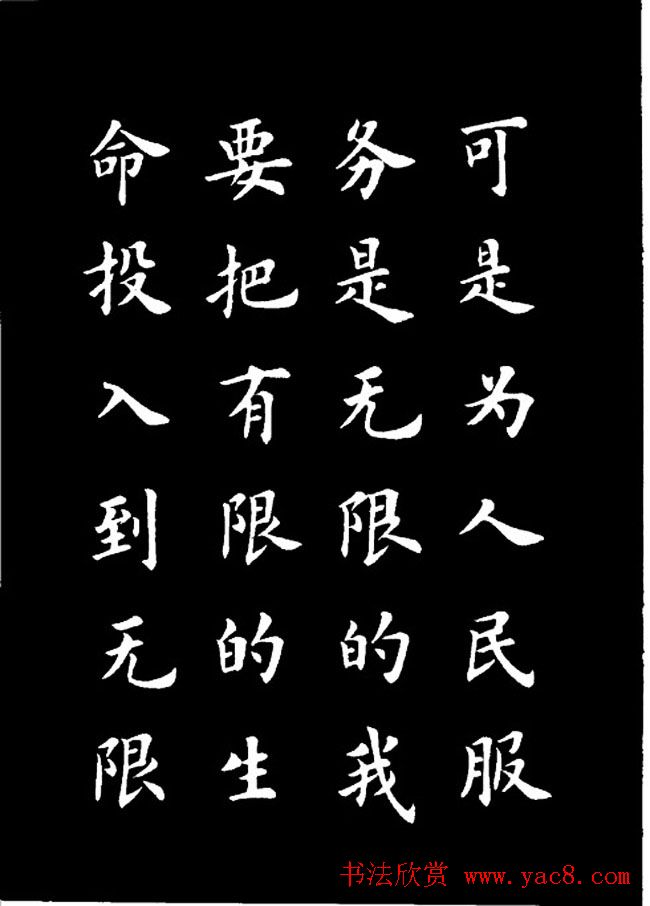 可是为人民服
务是无限的我
要把有限的生
命投入到无限
书法欣赏 www.yac8.com